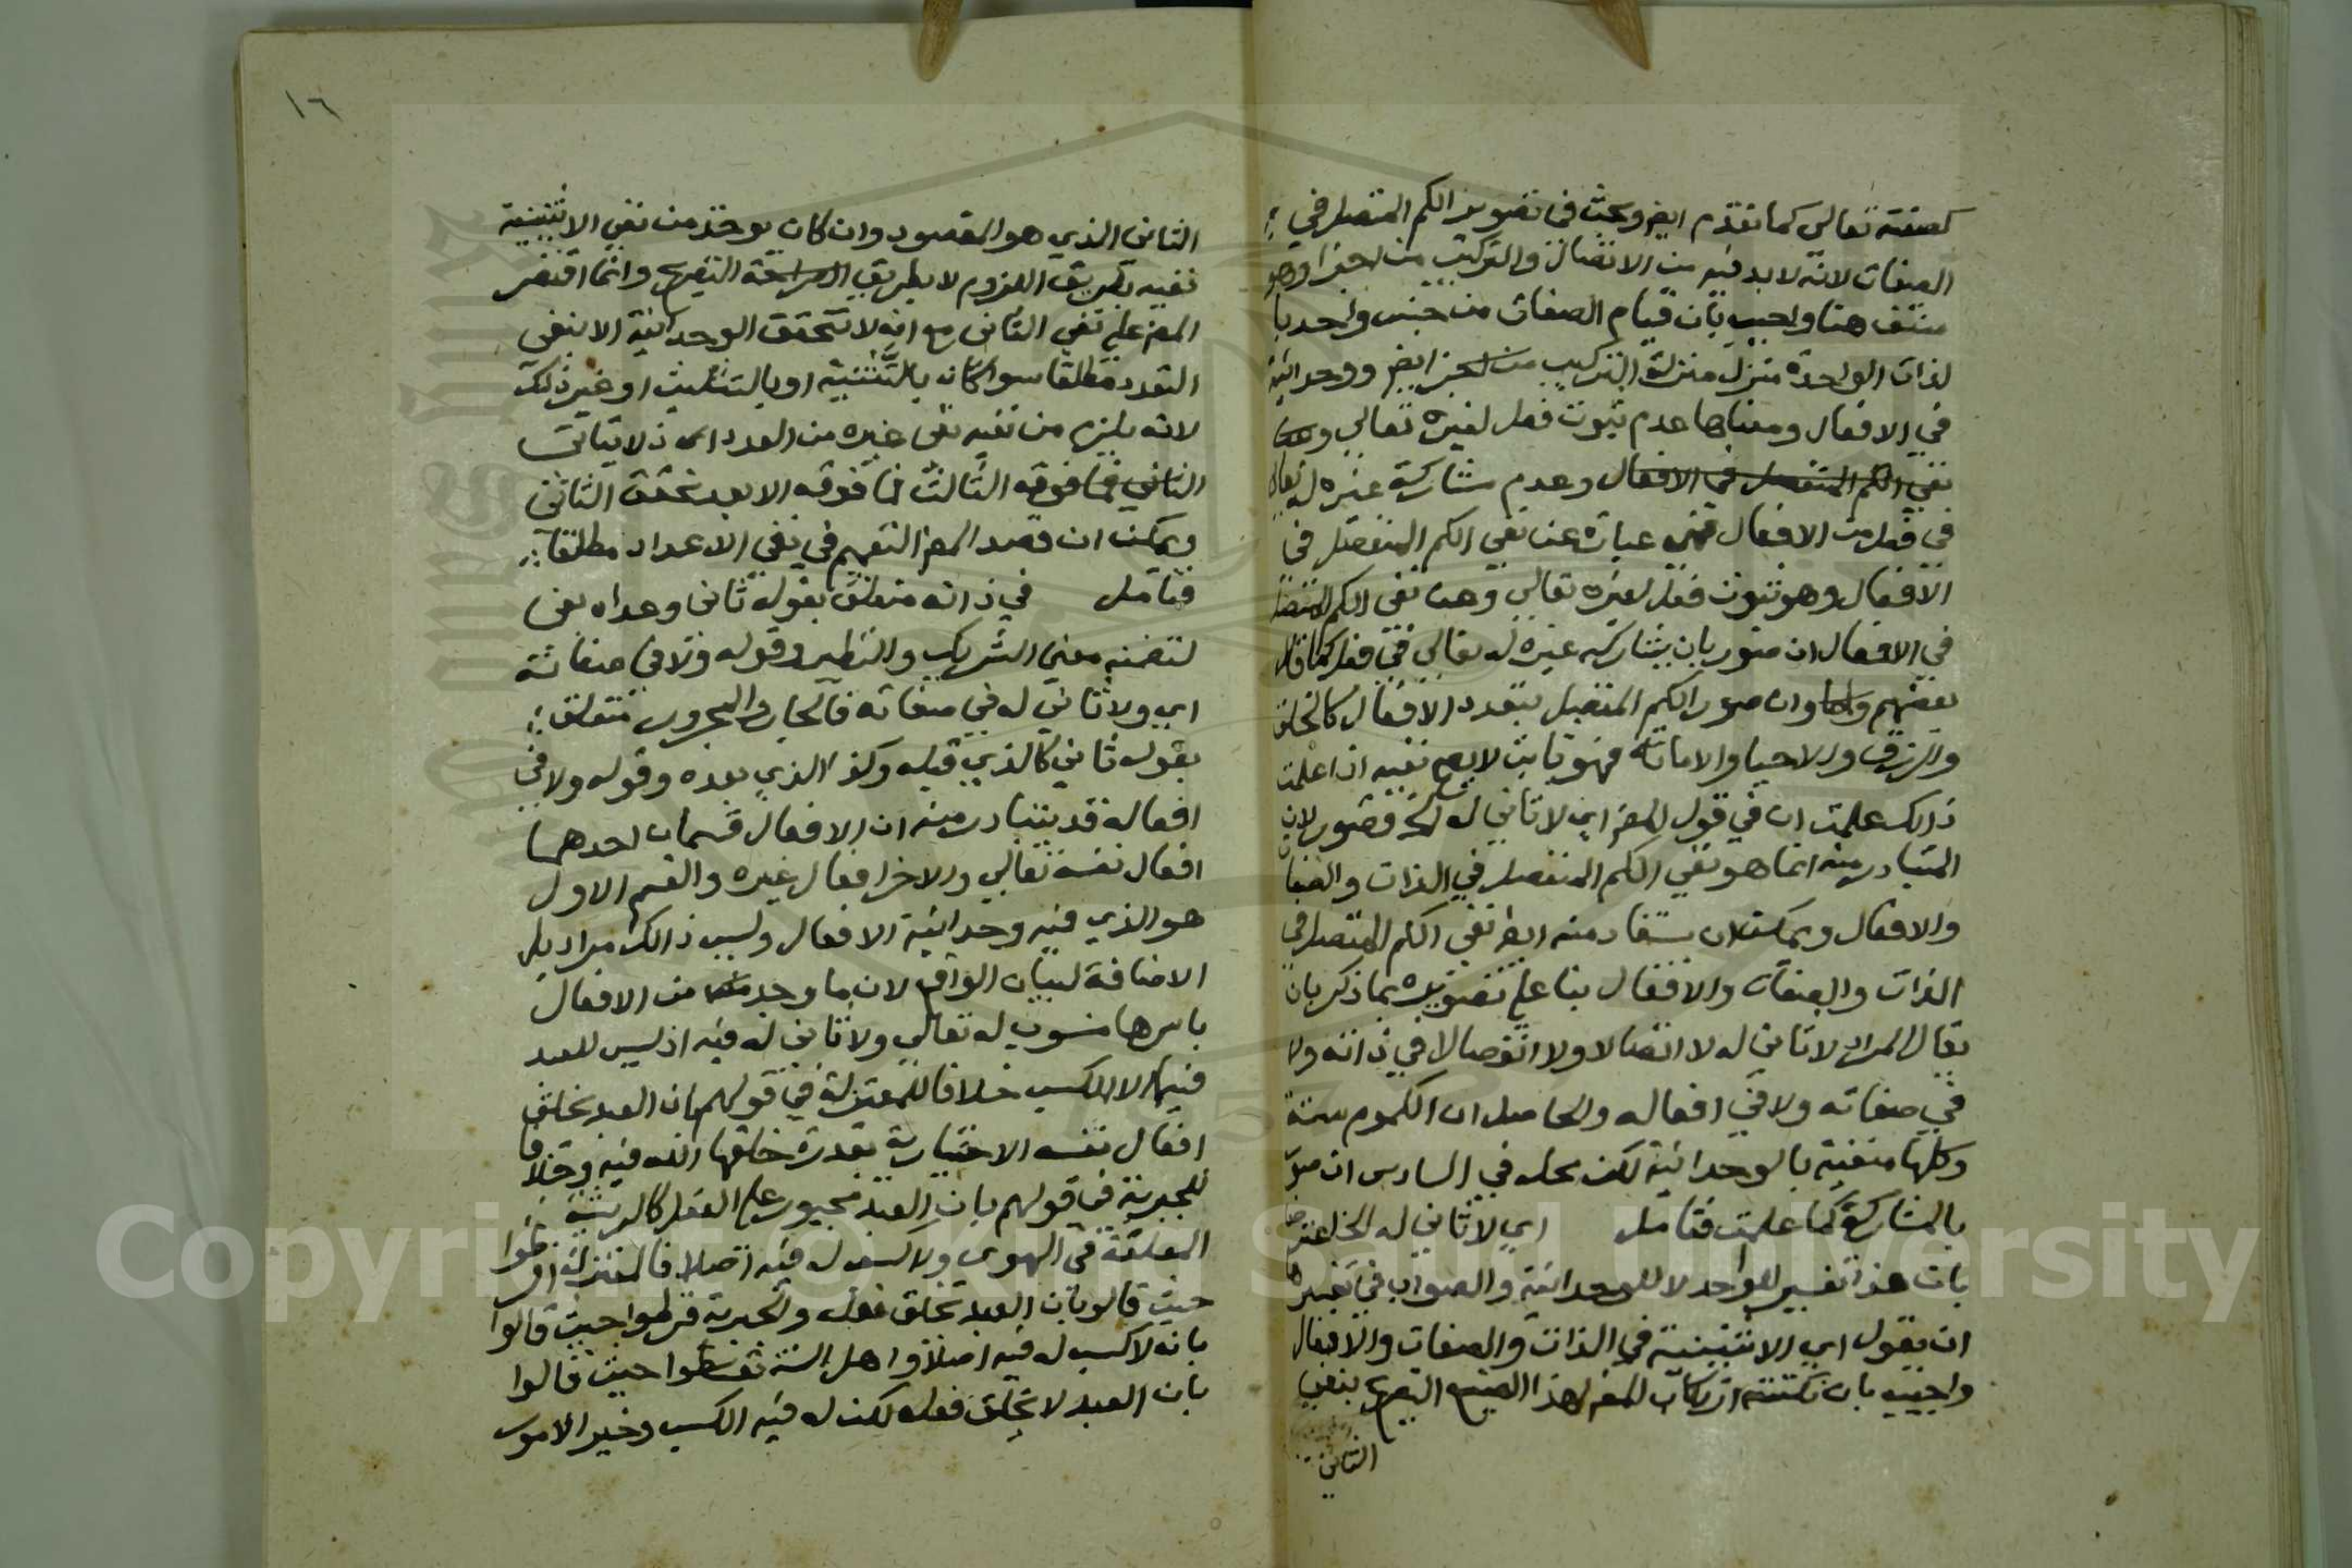 كصفته تعالى كما تقدم ايض وبحث في تصوير الكم المتصل في
الصفات لانه لا بد فيه من الاتصال والتركيب من اجزا وهو
منتف هنا واجيب بان قيام الصفات من جنس واحد با
لذات الواحدة منزل منزلة التركيب من اجز ايض ووحدانية
في الافعال ومعناها عدم ثبوت فعل لغيره تعالى
نفي الكم المتصل في الافعال وعدم مشاركة غيره له تعالى
في فعل من الافعال فهي عبارة عن نفي الكم المنفصل في
الافعال وهو ثبوت فعل لغيره تعالى وعن نفي الكم المتصل
في الافعال ان صور بان يشاركه غيره له تعالى في فعل كما قال
بعضهم وان صور الكم المتصل بتعدد الافعال كالخلق
والرزق والاحيا والاماتة فهو ثابت لا يصح نفيه اذا علمت
ذالك علمت ان في قول المص اي لا ثاني له الخ قصور لان
المتبادر منه انما هو نفي الكم المنفصل في الذات والصفات
والافعال ويمكن ان يستفاد منه ايض نفي الكم المتصل في
الذات والصفات والافعال بنا على تصويره بما ذكر بان
يقال المراد لا ثاني له لا اتصالا ولا انفصالا في ذاته ولا
في صفاته ولا في افعاله والحاصل ان الكموم ستة
وكلها منفية بالوحدانية لكن محله في السادس ان صور
بالمشاركة كما علمت فتامل اي لا ثاني له الخ اعترض
بان هذا تفسير للواحد لا للوحدانية والصواب في تفسيرها
ان يقول اي لا اثنينية في الذات والصفات والافعال
واجيب بان نكتته ارتكاب المص لهذا الصنيع التصريح بنفي
الثاني
١٦
الثاني الذي هو المقصود وان كان يوخذ من نفي الاثنينية
نفيه بطريق اللزوم لا بطريق الصراحة التصريح وانما اقتصر
المص على نفي الثاني مع انه لا تتحقق الوحدانية الا بنفي
التعدد مطلقا سوا كان بالتثنية او بالتثليث او غير ذلك
لانه يلزم من نفيه نفي غيره من العدد اي
الثاني فما فوقه الثالث فما فوقه الا بعد تحقق الثاني
ويمكن ان قصد المص التعميم في نفي الاعداد مطلقا
فتامل في ذاته متعلق بقوله ثاني وعداه بفي
لتضمنه معني الشريك والنظير وقوله ولا في صفاته
اي ولا ثاني له في صفاته فالجار والمجرور متعلق
بقوله ثاني كالذي قبله وكذ الذي بعده وقوله ولا في
افعاله قد يتبادر منه ان الافعال قسمان احدهما
افعال نفسه تعالي والاخر افعال غيره والقسم الاول
هو الذي فيه وحدانية الافعال وليس ذالك مراد بل
الاضافة لبيان الواقع لان ما وجد من الافعال
باسرها منسوب له تعالي ولا ثاني له فيه اذ ليس للعبد
فيها الا الكسب خلافا للمعتزلة في قولهم بان العبد يخلق
افعال نفسه الاختيارية بقدرة خلقها الله فيه وخلافا
للجبرية في قولهم بان العبد مجبور على الفعل كالريشة
المعلقة في الهوى ولا كسب له فيه اصلا فالمعتزلة افرطوا
حيث قالو بان العبد يخلق فعله والجبرية فرطوا حيث قالوا
بانه لا كسب له فيه اصلا واهل السنة توسطوا حيث قالوا
بان العبد لا يخلق فعله لكن له فيه الكسب وخير الامور
Copyright © King Saud University